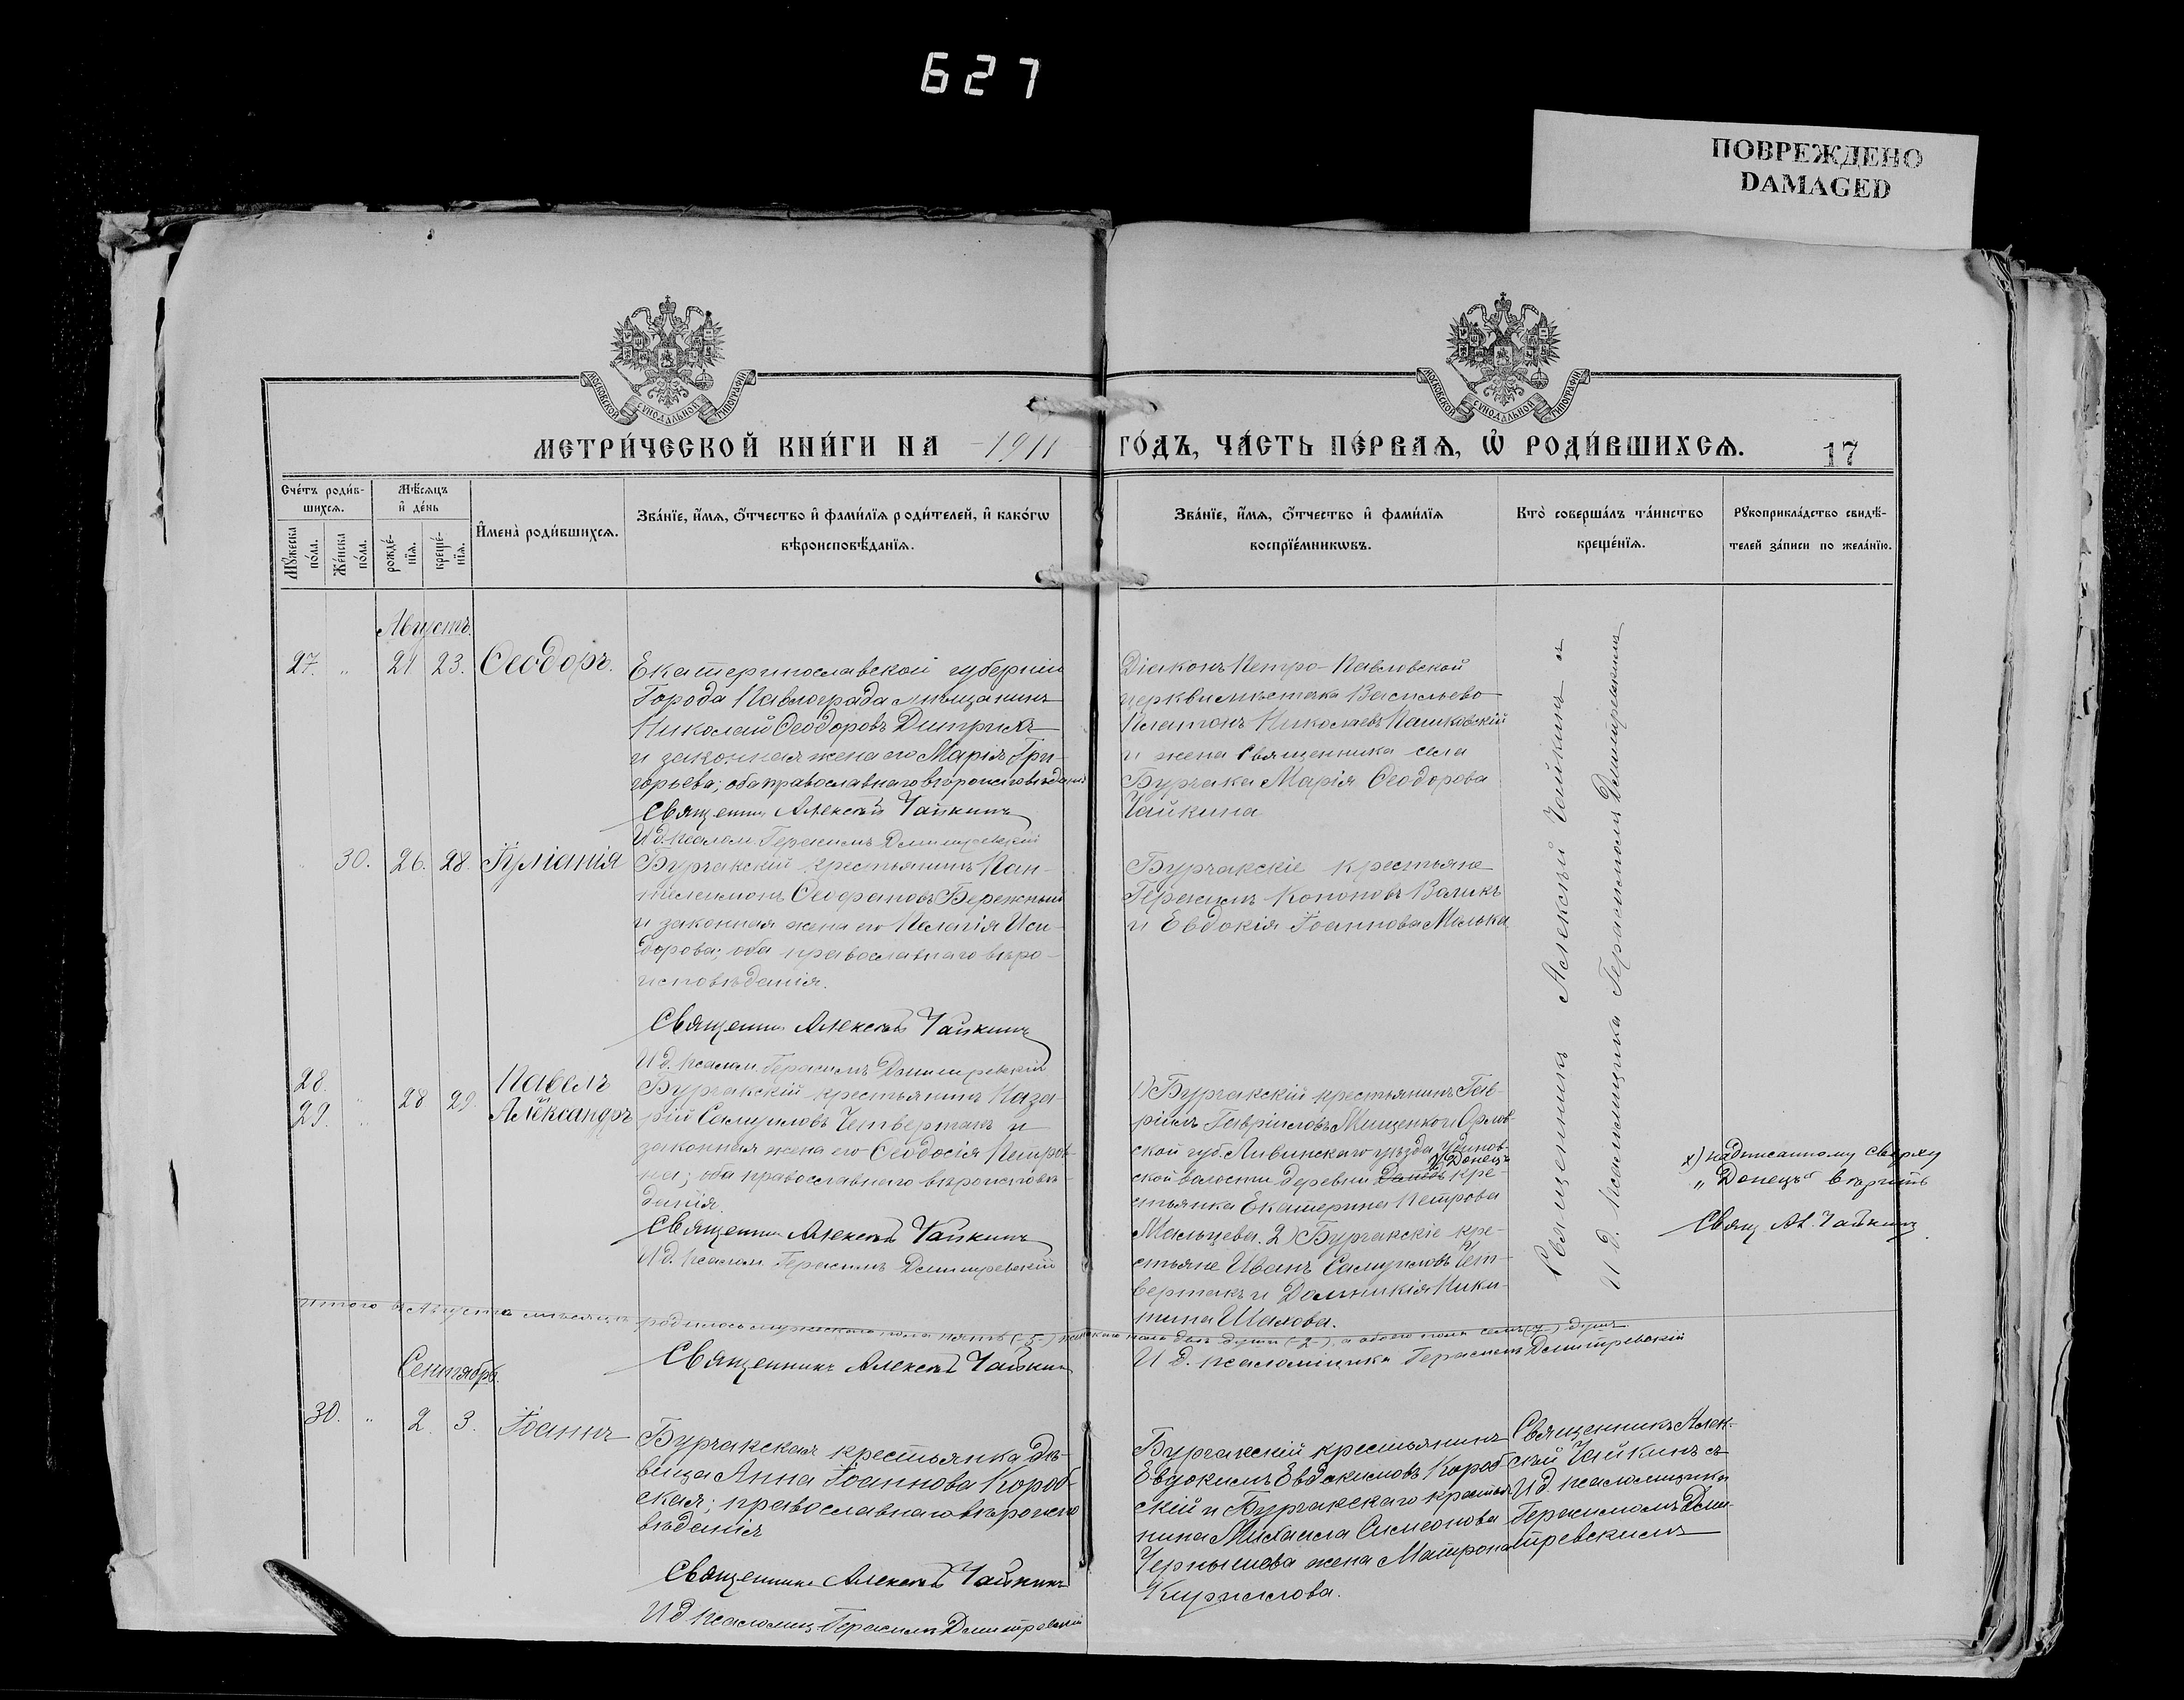 627
ПОВРЕЖДЕНО
DAMAGED
МОСКОВСКОЙ СѴНОДАЛЬНОЙ ТИПОГРАФІИ
МОСКОВСКОЙ СѴНОДАЛЬНОЙ ТИПОГРАФІИ
МЕТРИ́ЧЕСКОЙ КНИ́ГИ НА 1911 ГО́ДЪ, ЧА́СТЬ ПЕ́РВАѦ, Ѡ҆ РОДИ́ВШИХСѦ. 17
Сче́тъ роди́в-
шихсѧ.
Мꙋ́жеска
по́ла.
Же́нска
по́ла.
Мѣ́сѧцъ
и҆ де́нь
рожде́-
нїѧ.
креще́-
нїѧ.
И҆мена̀ роди́вшихсѧ.
Зва́нїе, и҆́мѧ, ѻ҆́тчество и҆ фами́лїѧ роди́телей, и҆ како́гѡ
вѣроисповѣ́данїѧ.
Зва́нїе, и҆́мѧ, ѻ҆́тчество и҆ фами́лїѧ
воспрїе́мникѡвъ.
Кто̀ соверша́лъ та́инство
креще́нїѧ.
Рꙋкоприкла́дство свидѣ́-
телей за́писи по жела́нїю.
Августъ.
27. " 21 23. Ѳеодоръ.
Екатеринославской губерніи
Города Павлограда мѣщанинъ
Николай Ѳеодоровъ Дитрихъ
и законная жена его Марія Гри-
горьева; оба православнаго вѣроисповѣданія
Священникъ Алексѣй Чайкинъ
И д. псалом. Герасимъ Димитревскій
Діаконъ Петро-Павловской
церкви мѣстечка Васильево
Платонъ Николаевъ Пашковскій
и жена священника села
Бурчака Марія Ѳеодорова
Чайкина
30. 26. 28. Іуліанія
Бурчакскій крестьянинъ Пан-
телеимонъ Ѳеофановъ Бережный
и законная жена его Пелагія Иси-
дорова; оба православнаго вѣро-
исповѣданія.
Священникъ Алексѣй Чайкинъ
И д. псалом. Герасимъ Димитревскій
Бурчакскіе крестьяне
Герасимъ Кононовъ Вачикъ
и Евдокія Іоаннова Малька
28. " 28 29. Павелъ
29. " Александръ
Бурчакскій крестьянинъ Наза-
рій Самуиловъ Четвертакъ и
законная жена его Ѳеодосія Петров-
на; оба православнаго вѣроисповѣ-
данія.
Священникъ Алексѣй Чайкинъ
И д. псалом. Герасимъ Димитревскій
1) Бурчакскій крестьянинъ Гав-
ріилъ Гавріиловъ Мищенко и Орлов-
ской губ. Ливинскаго уѣзда,
х) Донецъ
ской волости деревни кре-
стьянка Екатерина Петрова
Мальцева. 2) Бурчакскіе кре-
стьяне Иванъ Самуиловъ Чет-
вертакъ и Домникія Ники-
тина Шахова.
Священникъ Алексѣй Чайкинъ съ
И д. псаломщика Герасимомъ Димитревскимъ
х) надписанному сверху
„Донецъ" вѣрить
Свящ. Ал. Чайкинъ
Итого въ Августѣ мѣсяцѣ родилось мужескаго пола пять (-5-) женскаго пола двѣ души (-2-), а обоего пола семь (7) душъ.
Священникъ Алексѣй Чайкинъ
И д. псаломщика Герасимъ Димитревскій
Сентябрь.
30. " 2. 3. Іоаннъ
Бурчакская крестьянка дѣ-
вица Анна Іоаннова Короб-
ская; православнаго вѣроиспо-
вѣданія
Священникъ Алексѣй Чайкинъ
И д псаломщ. Герасимъ Димитревскій
Бурчакскій крестьянинъ
Евдокимъ Евдокимовъ Короб-
скій и Бурчакскаго крестья-
нина Михаила Симеонова
Чернышева жена Матрона
Кириллова.
Священникъ Алек-
сѣй Чайкинъ съ
И д псаломщика
Герасимомъ Дими-
тревскимъ